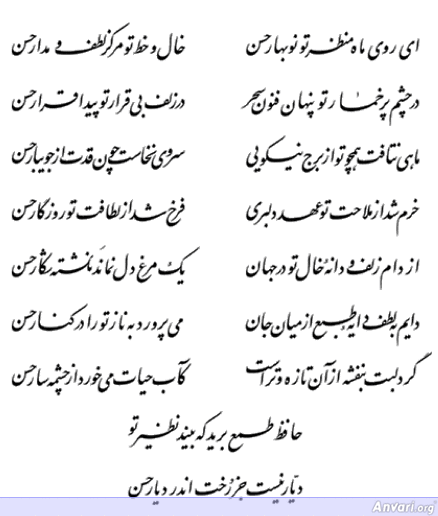 ای روی ماه منظر تو نوبهار حسن خال و خط تو مرکز لطف و مدار حسن
در چشم پرخمار تو پنهان فنون سحر در زلف بی قرار تو پیدا قرار حسن
ماهی نتافت همچو تو از برج نیکویی سروی نخاست چون قدت از جویبار حسن
خرم شد از ملاحت تو عهد دلبری فرخ شد از لطافت تو روزگار حسن
از دام زلف و دانهٔ خال تو در جهان یک مرغ دل نماند نگشته شکار حسن
دایم به لطف دایهٔ طبع از میان جان می پرورد به ناز تو را در کنار حسن
گرد لبت بنفشه از آن تازه و تر است کآب حیات می خورد از چشمه سار حسن
حافظ طمع برید که بیند نظیر تو
دیّار نیست جز رخت اندر دیار حسن
Anvari.org